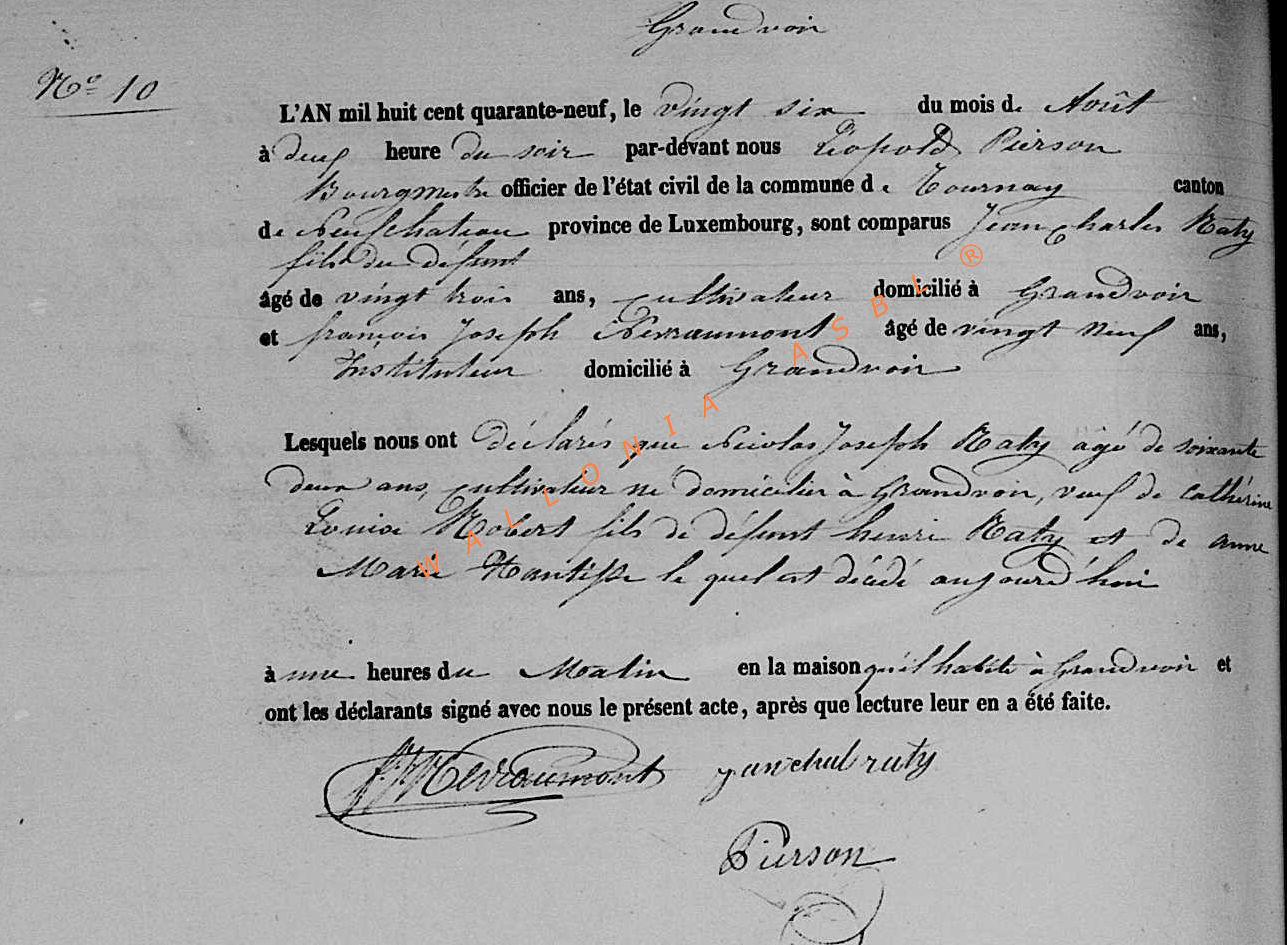 Grandvoir
N° 10
L'AN mil huit cent quarante-neuf, le vingt six du mois de Août
à deux heure du soir par-devant nous Léopold Pierson
Bourgmestre officier de l'état civil de la commune de Tournay canton
de Neufchateau province de Luxembourg, sont comparus Jean Charles Raty
fils du défunt
âgé de vingt trois ans, cultivateur domicilié à Grandvoir
et françois Joseph Nevraumont âgé de vingt neuf ans,
Instituteur domicilié à Grandvoir
Lesquels nous ont déclarés que Nicolas Joseph Raty agé de soixante
deux ans, cultivateur né domicilier à Grandvoir, veuf de Cathérine
Louise Robert fils de défunt henri Raty et de anne
Marie le quel est décédé aujourd'hui
à une heures du Matin en la maison qu'il habite à Grandvoir et
ont les déclarants signé avec nous le présent acte, après que lecture leur en a été faite.
Nevraumont
Pierson
WALLONIA ASBL ®